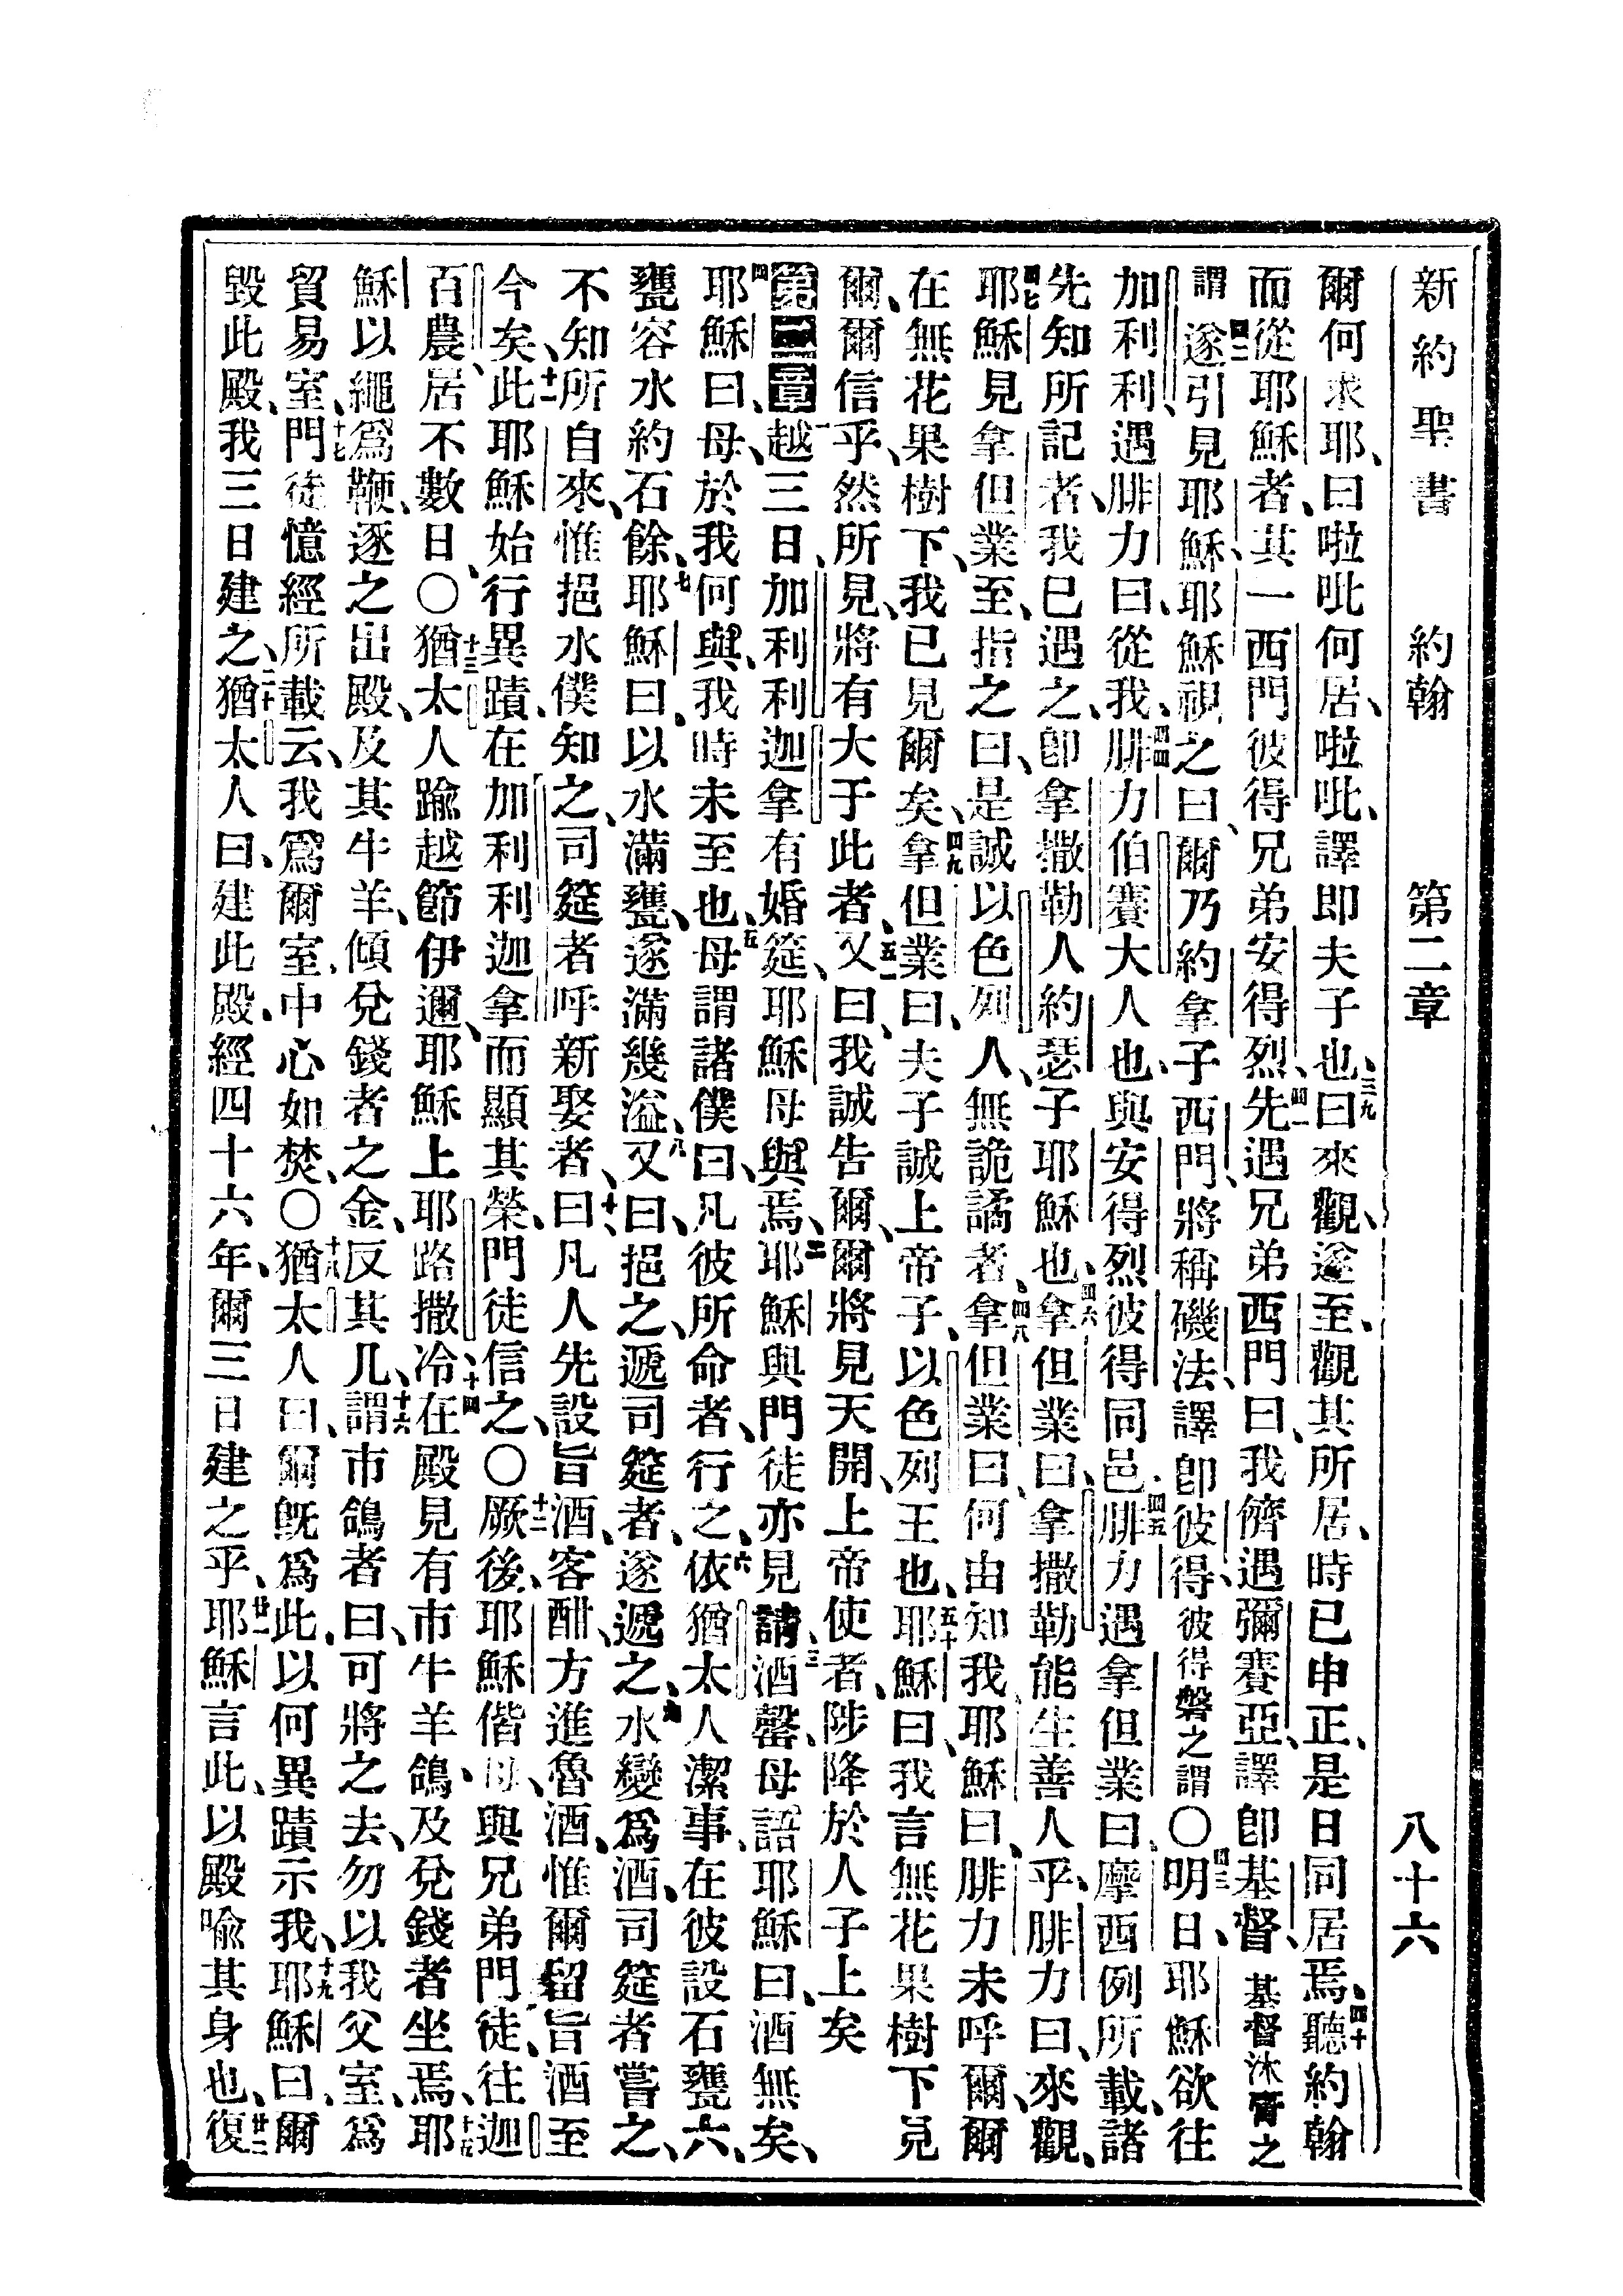 新約聖書 約翰 第二章 八十六
爾何求、耶曰啦吡何居、啦吡、譯即夫子也、三九曰來觀、遂至、觀其所居、時已申正、是日同居焉、四十聽約翰
而從耶穌者、其一西門彼得兄弟安得烈、四一先遇兄弟西門曰、我儕遇彌賽亞、譯卽基督、基督沐膏之
謂四二遂引見耶穌、耶穌視之曰、爾乃約拿子西門、將稱磯法、譯卽彼得、彼得磐之謂〇四三明日、耶穌欲往
加利利、遇腓力曰、從我、四四腓力伯賽大人也、與安得烈彼得同邑、四五腓力遇拿但業曰、摩西例所載、諸
先知所記者、我已遇之、卽拿撒勒人約瑟子耶穌也、四六拿但業曰、拿撒勒能生善人乎、腓力曰、來觀、
四七耶穌見拿但業至、指之曰、是誠以色列人、無詭譎者、四八拿但業曰、何由知我、耶穌曰、腓力未呼爾、爾
在無花果樹下、我已見爾矣、四九拿但業曰、夫子誠上帝子、以色列王也、五十耶穌曰、我言無花果樹下見
爾、爾信乎、然所見、將有大于此者、五一又曰、我誠告爾、爾將見天開、上帝使者、陟降於人子上矣
第二章一越三日、加利利迦拿有婚筵、耶穌母與焉、二耶穌與門徒亦見請、三酒罄、母語耶穌曰、酒無矣、
四耶穌曰、母、於我何與、我時未至也、五母謂諸僕曰、凡彼所命者、行之、六依猶太人潔事、在彼設石甕六、
甕容水約石餘、七耶穌曰、以水滿甕、遂滿幾溢、八又曰、挹之、遞司筵者、遂遞之、九水變爲酒、司筵者嘗之、
不知所自來、惟挹水僕知之、司筵者呼新娶者、十曰、凡人先設旨酒、客酣、方進魯酒、惟爾留旨酒至
今矣、十一此耶穌始行異蹟、在加利利迦拿而顯其榮、門徒信之、〇十二厥後、耶穌偕母、與兄弟門徒、往迦
百農、居不數日、〇十三猶太人踰越節伊邇、耶穌上耶路撒冷、十四在殿見有市牛羊鴿、及兌錢者坐焉、十五耶
穌以繩爲鞭、逐之出殿、及其牛羊、傾兌錢者之金、反其几、十六謂市鴿者曰、可將之去、勿以我父室、爲
貿易室、十七門徒憶經所載云、我爲爾室、中心如焚、〇十八猶太人曰、爾旣爲此、以何異蹟示我、十九耶穌曰、爾
毀此殿、我三日建之、二十猶太人曰、建此殿、經四十六年、爾三日建之乎、廿一耶穌言此、以殿喻其身也、廿二復